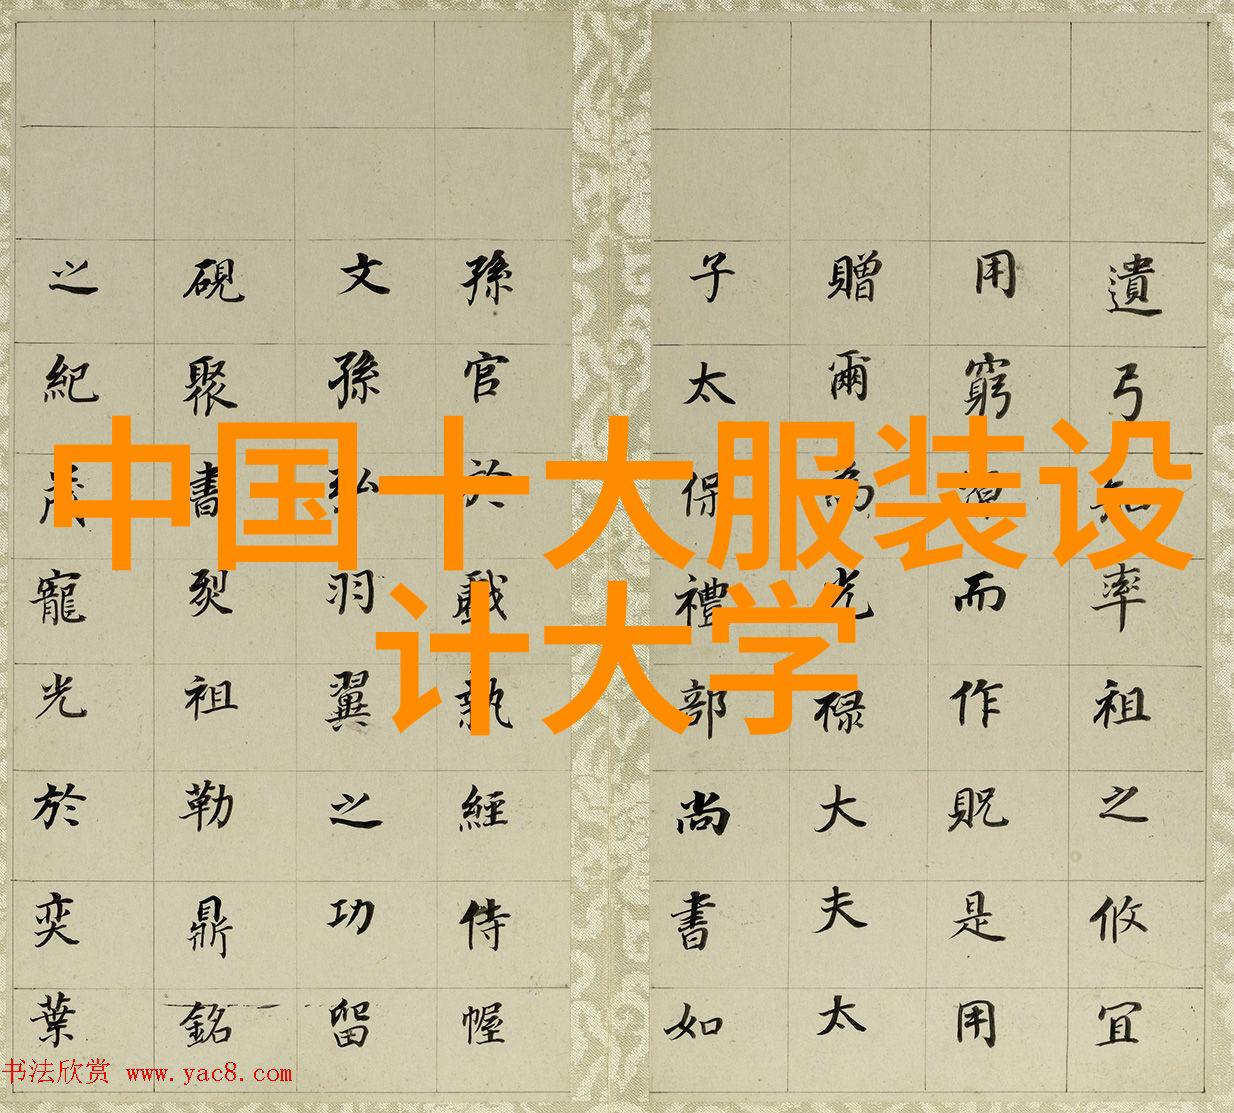 中国十大服装设
计大学
遺弓知率祖之攸宜
用窮而作貺是用
贈爾為光禄大夫太
子太保禮部尚書如
孫官於戲執經侍幄
文孫弘羽翼之功留
硯聚書裂祖勒鼎銘
之紀寵光於奕葉
书法欣赏 www.yac8.com